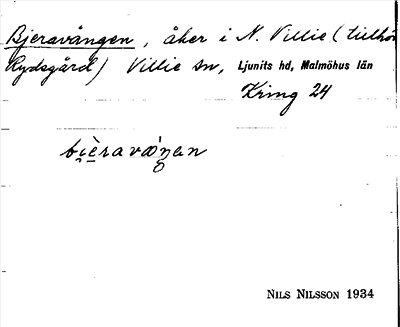 Bjeravången, åker i N. Villie (tillhör
Rydsgård) Villie sn, Ljunits hd, Malmöhus län
Kring 24
bi̯èravåŋen
NILS NILSSON 1934